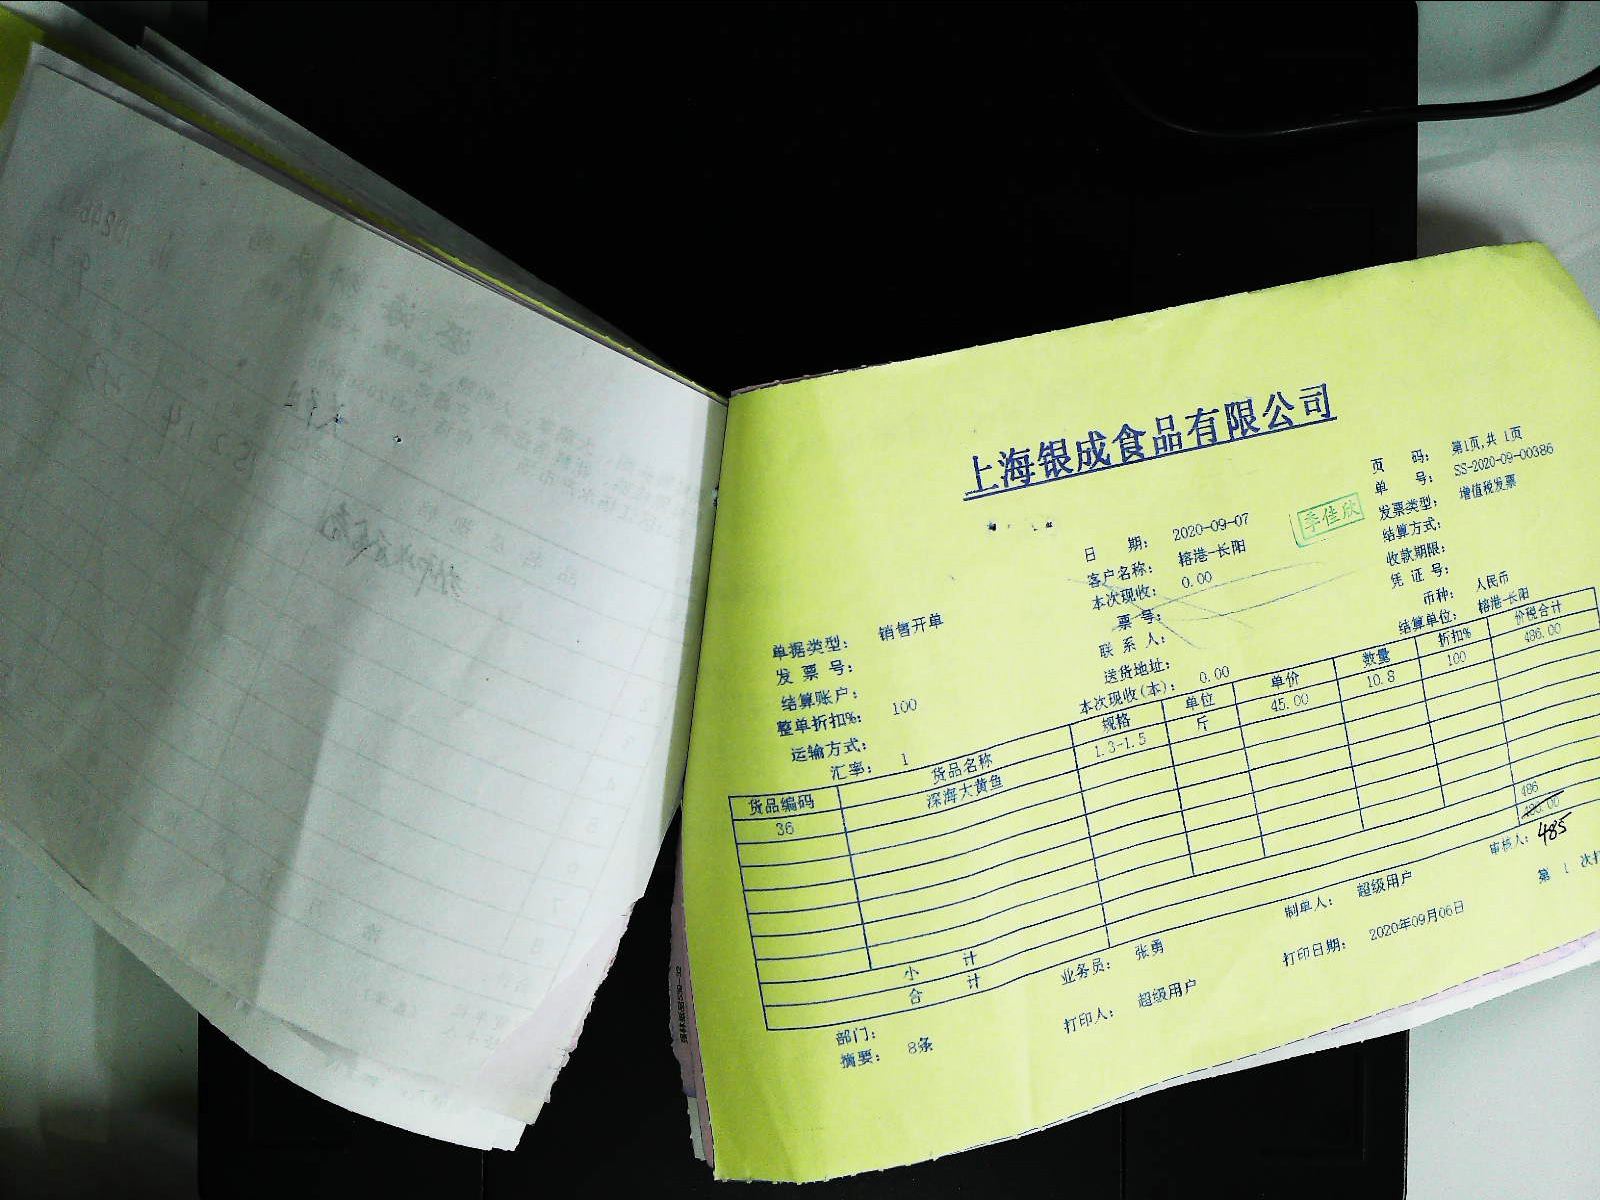 上海银成食品有限公司
页 码: 第1页,共 1页
单 号: SS-2020-09-00386
日 期: 2020-09-07
李佳欣
发票类型: 增值税发票
客户名称: 榕港-长阳
结算方式:
本次现收: 0.00
收款期限:
单据类型: 销售开单
票 号:
凭 证 号:
发 票 号:
联 系 人:
币种: 人民币
结算账户:
送货地址:
结算单位: 榕港-长阳
整单折扣%: 100
本次现收(本): 0.00
运输方式:
汇率: 1
货品编码 货品名称 规格 单位 单价 数量 折扣% 价税合计
36 深海大黄鱼 1.3-1.5 斤 45.00 10.8 100 486.00
小 计 486
合 计 486.00
485
部门: 业务员: 张勇 制单人: 超级用户 审核人:
摘要: 8条 打印人: 超级用户 打印日期: 2020年09月06日 第 1 次打